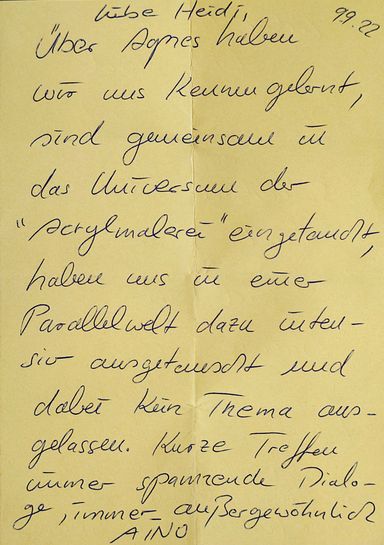 Liebe Heidi, 9.9.22
Über Agnes haben
wir uns kennengelernt,
sind gemeinsam in
das Universum der
"Acrylmalerei" eingetaucht,
haben uns in einer
Parallelwelt dazu inten-
siv ausgetauscht und
dabei kein Thema aus-
gelassen. Kurze Treffen
immer spannende Dialo-
ge, immer außergewöhnlich
AINO